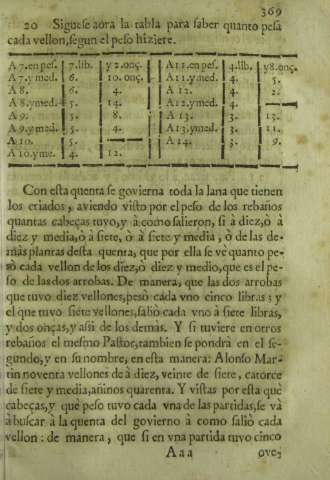 369
20 Siguese aora la tabla para saber quanto pesa
cada vellon, segun el peso hiziere.
A 7. en pes. 7. lib. y 2. onç. A 11. en pes. 4. lib. y 8. onç.
A 7. y med. 6. 10. onç. A 11. y med. 4. 5.
A 8. 6. 4. A 12. 4. 2.
A 8. y med. 5. 14. A 12. y med. 4.
A 9. 5. 8. A 13. 3. 13.
A 9. y med. 5. 4. A 13. y med. 3. 11.
A 10. 5. A 14. 3. 9.
A 10. y me. 4. 12.
Con esta quenta se govierna toda la lana que tienen
los criados, aviendo visto por el peso de los rebaños
quantas cabeças tuvo, y à como salieron, si à diez, ò à
diez y media, ò à siete, ò à siete y media, ò de las de-
màs plantas desta quenta, que por ella se vè quanto pe-
sò cada vellon de los diez, ò diez y medio, que es el pe-
so de las dos arrobas. De manera, que las dos arrobas
que tuvo diez vellones, pesò cada vno cinco libras; y
el que tuvo siete vellones, saliò cada vno à siete libras,
y dos onças, y assi de los demàs. Y si tuviere en otros
rebaños el mesmo Pastor, tambien se pondrà en el se-
gundo, y en su nombre, en esta manera: Alonso Mar-
tin noventa vellones de à diez, veinte de siete, catorce
de siete y media, añinos quarenta. Y vistas por esta què
cabeças, y què peso tuvo cada vna de las partidas, se và
à buscar à la quenta del govierno à como saliò cada
vellon: de manera, que si en vna partida tuvo cinco
Aaa ove-